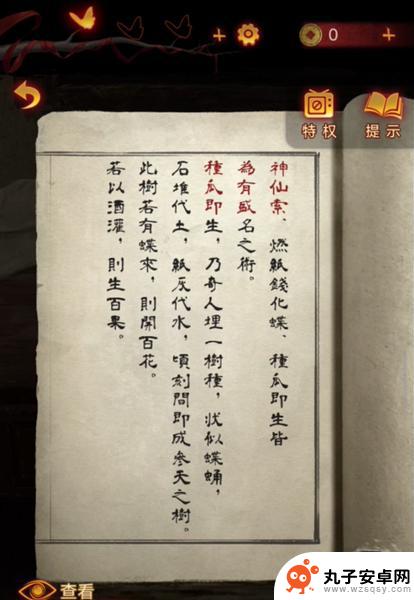 0
特权
提示
神仙索、燃紙錢化蝶、種瓜即生皆
為有盛名之術。
種瓜即生，乃奇人埋一樹種，狀似蝶蛹，
石堆代土，紙灰代水，頃刻間即成參天之樹。
此樹若有蝶來，則開百花。
若以酒灌，則生百果。
查看
丸子安卓网
www.wzsqsy.com